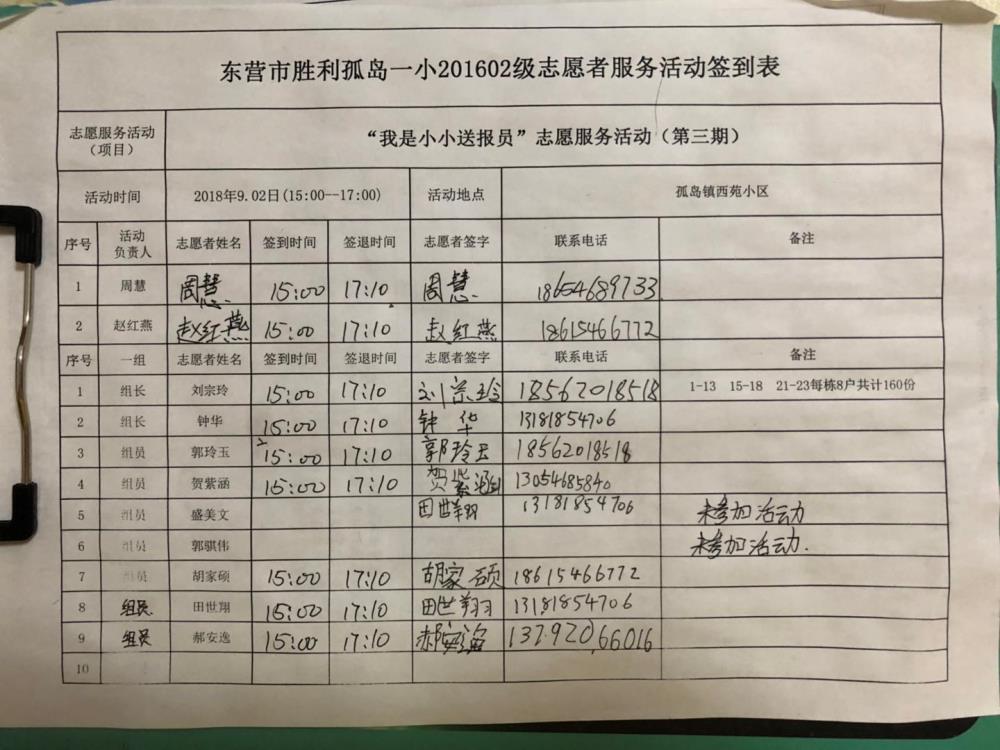 东营市胜利孤岛一小201602级志愿者服务活动签到表
志愿服务活动（项目） “我是小小送报员”志愿服务活动（第三期）
活动时间 2018年9.02日(15:00--17:00) 活动地点 孤岛镇西苑小区
序号 活动负责人 志愿者姓名 签到时间 签退时间 志愿者签字 联系电话 备注
1 周慧 周慧 15:00 17:10 周慧 18654689733
2 赵红燕 赵红燕 15:00 17:10 赵红燕 18615466772
序号 一组 志愿者姓名 签到时间 签退时间 志愿者签字 联系电话 备注
1 组长 刘宗玲 15:00 17:10 刘宗玲 18562018518 1-13 15-18 21-23每栋8户共计160份
2 组长 钟华 15:00 17:10 钟华 13181854706
3 组员 郭玲玉 15:00 17:10 郭玲玉 18562018518
4 组员 贺紫涵 15:00 17:10 贺紫涵 13054685840
5 组员 盛美文 田世翔 13181854706 未参加活动
6 组员 郭骐伟 未参加活动.
7 组员 胡家硕 15:00 17:10 胡家硕 18615466772
8 组员 田世翔 15:00 17:10 田世翔 13181854706
9 组员 郝安逸 15:00 17:10 郝安逸 13792066016
10